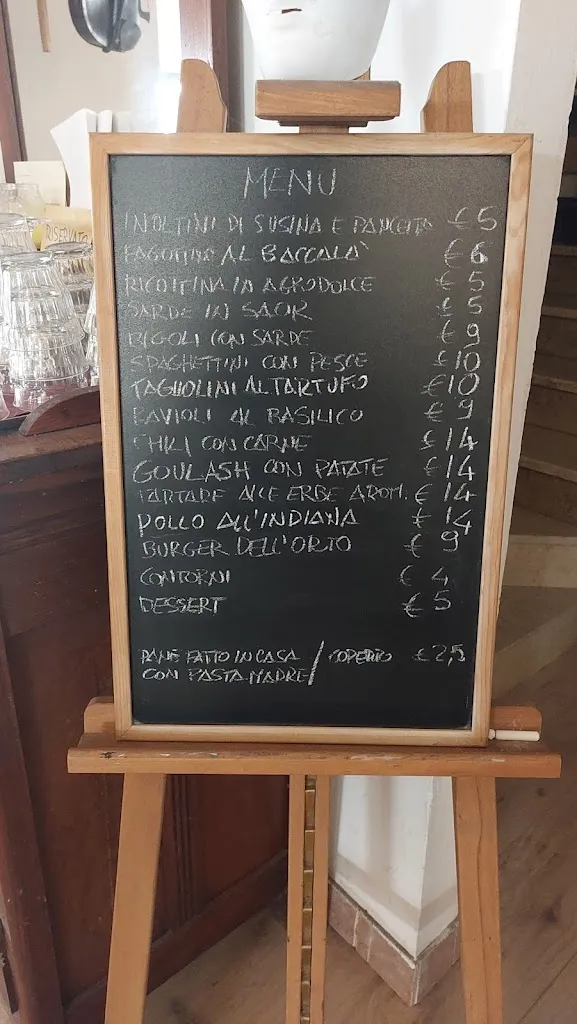 RISERVATO
MENU
INOLTINI DI SUSINA E PANCETTA €5
FAGOTTINO AL BACCALA' €6
RICOTTINA IN AGRODOLCE €5
SARDE IN SAOR €5
BIGOLI CON SARDE €9
SPAGHETTINI CON PESCE €10
TAGLIOLINI AL TARTUFO €10
RAVIOLI AL BASILICO €9
CHILI CON CARNE €14
GOULASH CON PATATE €14
TARTARE ALLE ERBE AROM. €14
POLLO ALL'INDIANA €14
BURGER DELL'ORTO €9
CONTORNI €4
DESSERT €5
PANE FATTO IN CASA / COPERTO €2,5
CON PASTA MADRE